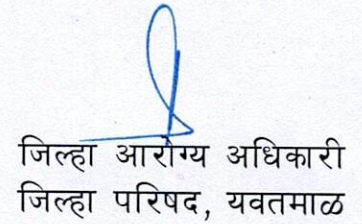 जिल्हा आरोग्य अधिकारी
जिल्हा परिषद, यवतमाळ